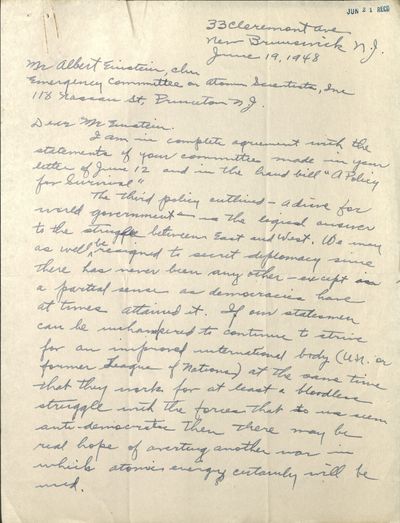 JUN 21 RECD
33 Claremont Ave
New Brunswick N.J.
June 19, 1948
Mr Albert Einstein, chm
Emergency Committee on Atomic Scientists, Inc
118 Nassau St, Princeton N J.
Dear Mr Einstein.
I am in complete agreement with the
statements of your committee made in your
letter of June 12 and in the hand bill "A Policy
for Survival".
The third policy outlined - a drive for
world government - is the logical answer
to the struggle between East and West. We may
as well be resigned to secret diplomacy since
there has never been any other - except in
a partial sense as democracies have
at times attained it. If our statesmen
can be unhampered to continue to strive
for an improved international body (U.N. or
former League of Nations) at the same time
that they work for at least a bloodless
struggle with the forces that to us seem
anti-democratic then there may be
real hope of averting another war in
which atomic energy certainly will be
used.